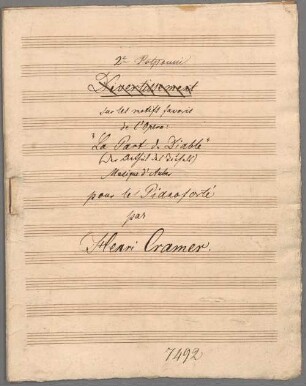 2e Potpourri
Divertissement
sur les motifs favoris
de l'Opera:
"La Part du Diable"
(Des Teufels Antheil)
Musique d'Auber
pour le Pianoforte
par
Henri Cramer.
7492